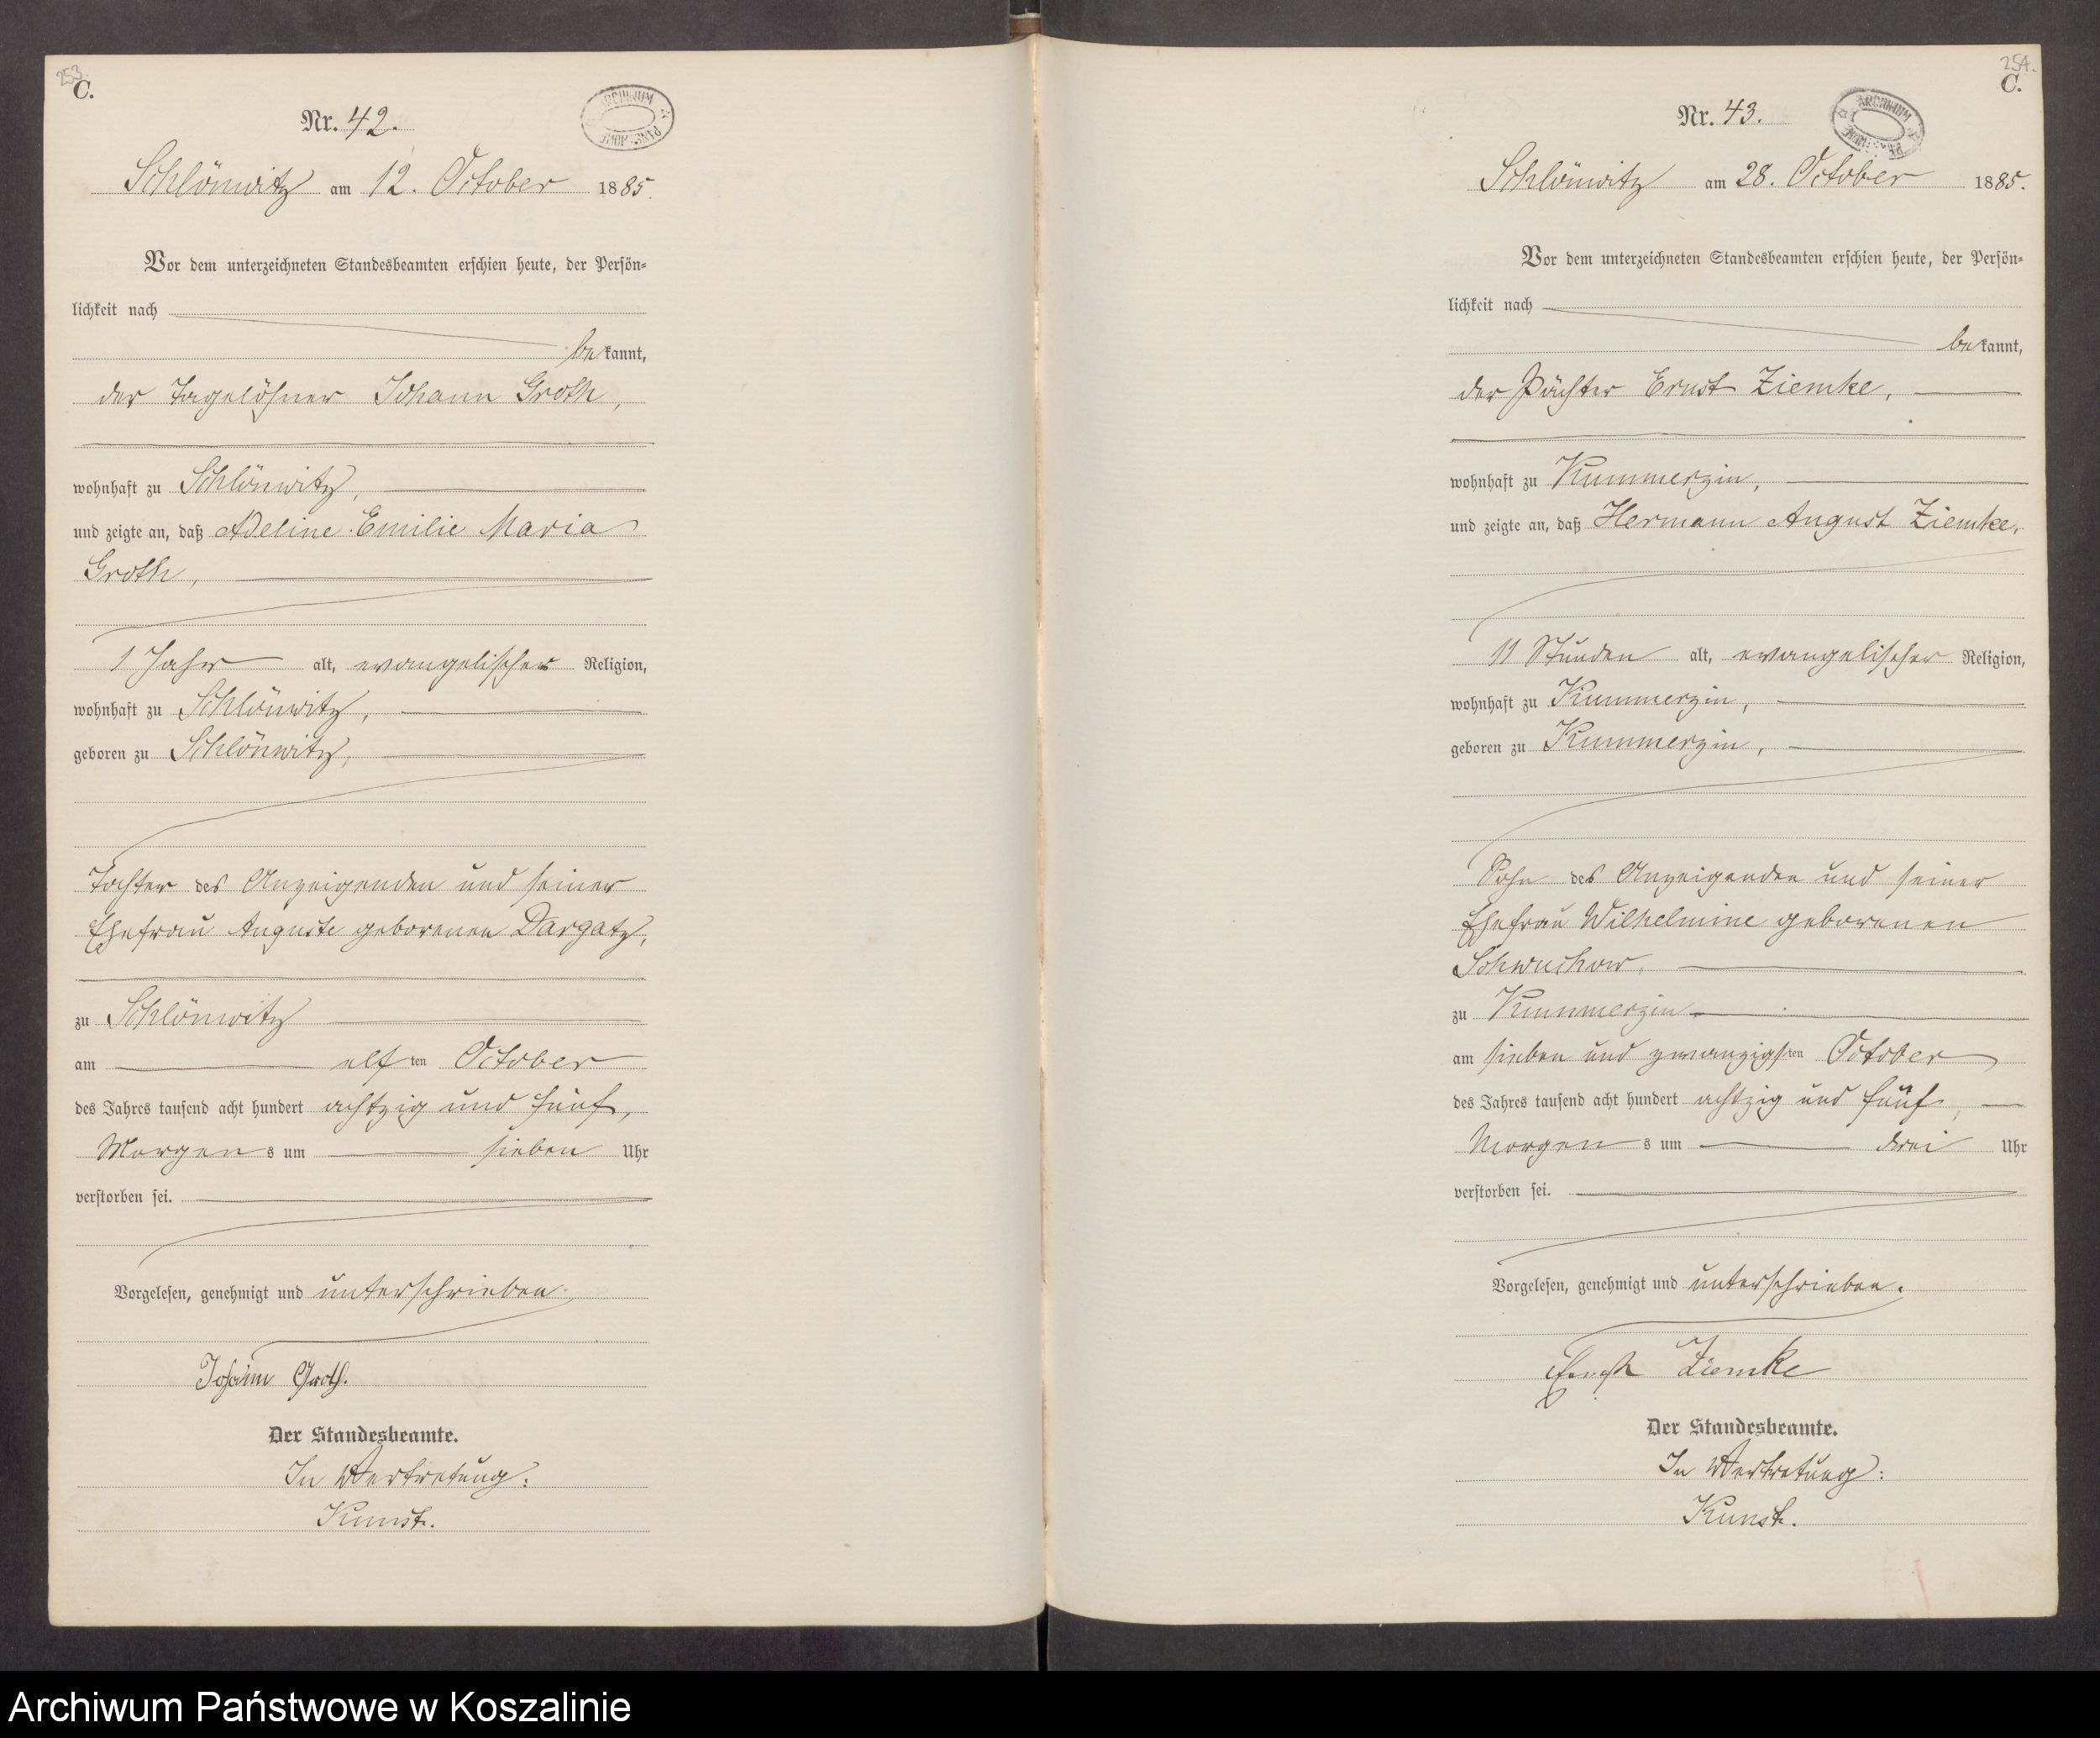 253.
C.
ARCHIWUM PAŃSTWOWE
Nr. 42.
Schlönwitz am 12. October 1885.
Vor dem unterzeichneten Standesbeamten erschien heute, der Persön=
lichkeit nach
bekannt,
der Tagelöhner Johann Groth,
wohnhaft zu Schlönwitz,
und zeigte an, daß Adeline Emilie Maria
Groth,
1 Jahr alt, evangelischer Religion,
wohnhaft zu Schlönwitz,
geboren zu Schlönwitz,
Tochter des Anzeigenden und seiner
Ehefrau Auguste geborenen Dargatz,
zu Schlönwitz
am elften October
des Jahres tausend acht hundert achtzig und fünf,
Morgens um sieben Uhr
verstorben sei.
Vorgelesen, genehmigt und unterschrieben.
Johann Groth.
Der Standesbeamte.
In Vertretung:
Kunst.
254.
C.
ARCHIWUM PAŃSTWOWE
Nr. 43.
Schlönwitz am 28. October 1885.
Vor dem unterzeichneten Standesbeamten erschien heute, der Persön=
lichkeit nach
bekannt,
der Pächter Ernst Ziemke,
wohnhaft zu Kummerzin,
und zeigte an, daß Hermann August Ziemke,
11 Stunden alt, evangelischer Religion,
wohnhaft zu Kummerzin,
geboren zu Kummerzin,
Sohn des Anzeigenden und seiner
Ehefrau Wilhelmine geborenen
Schwuchow,
zu Kummerzin
am sieben und zwanzigsten October
des Jahres tausend acht hundert achtzig und fünf,
Morgens um drei Uhr
verstorben sei.
Vorgelesen, genehmigt und unterschrieben.
Ernst Ziemke
Der Standesbeamte.
In Vertretung:
Kunst.
Archiwum Państwowe w Koszalinie